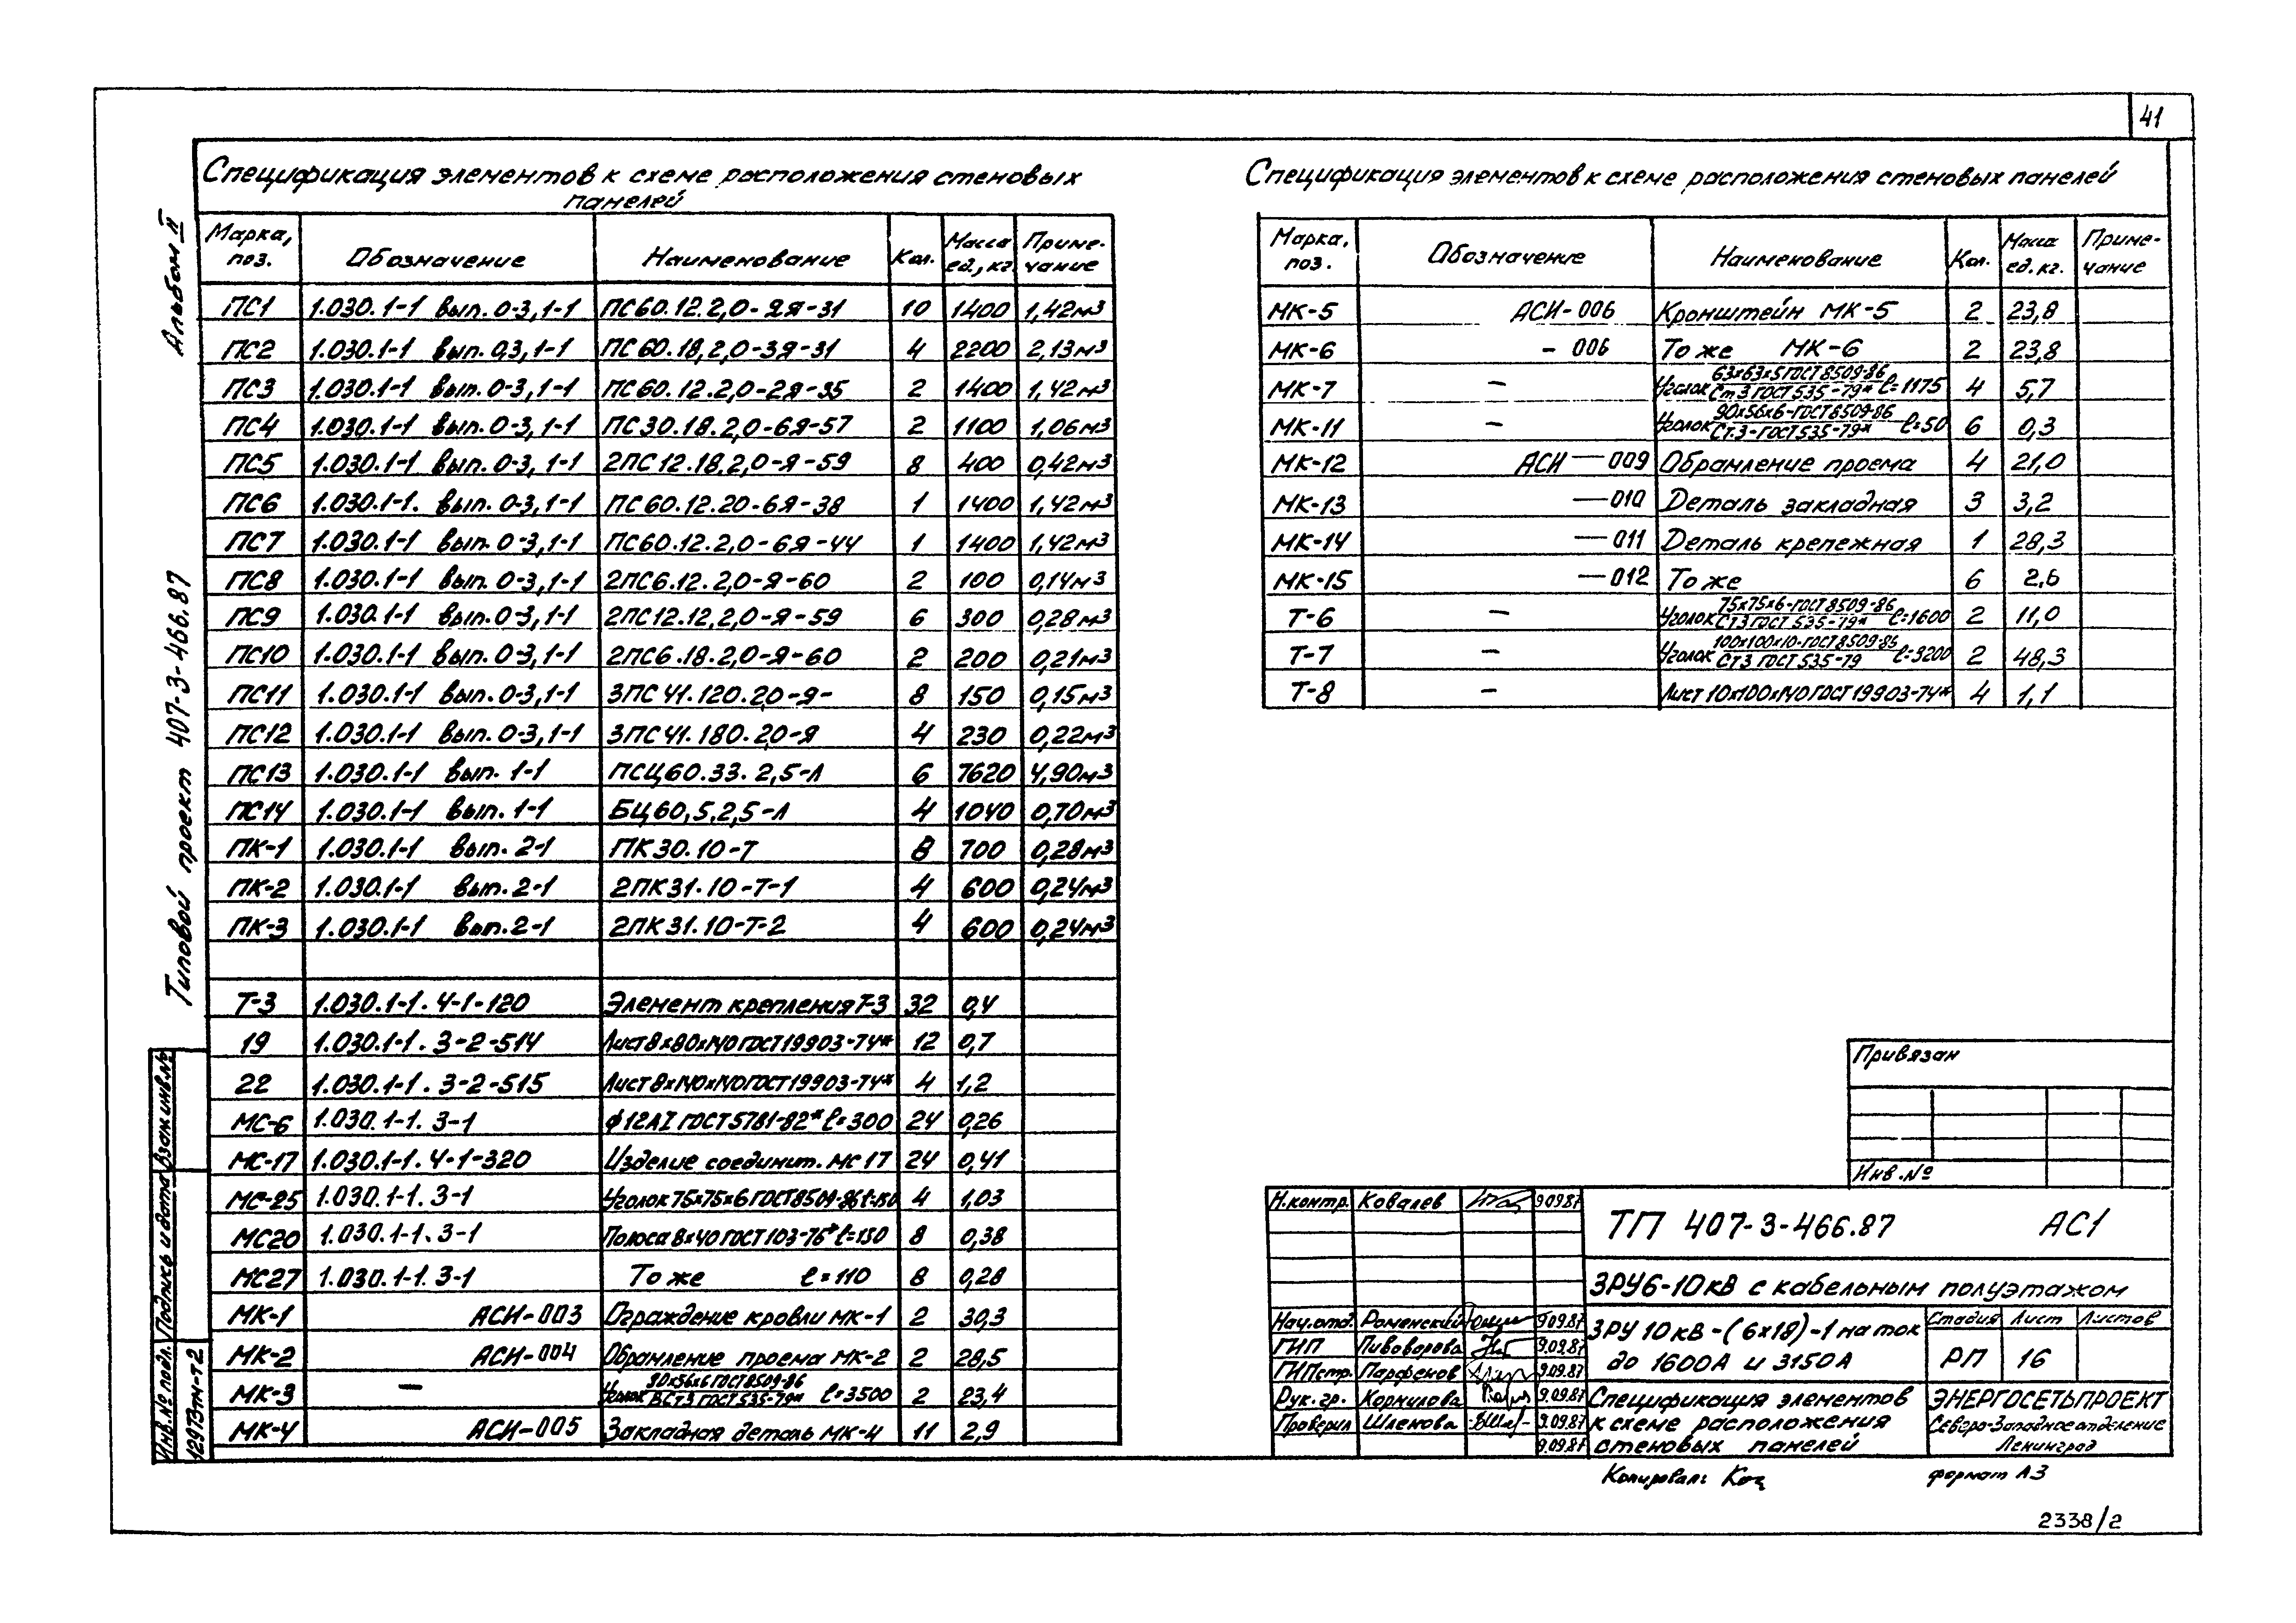 41
Альбом II
Типовой проект 407-3-466.87
Спецификация элементов к схеме расположения стеновых
панелей
Марка, поз. Обозначение Наименование Кол. Масса ед., кг. Приме-чание
ПС1 1.030.1-1 вып. 0-3, 1-1 ПС60.12.2,0-2Я-31 10 1400 1,42м³
ПС2 1.030.1-1 вып. 0,3, 1-1 ПС60.18,2,0-3Я-31 4 2200 2,13м³
ПС3 1.030.1-1 вып. 0-3, 1-1 ПС60.12.2,0-2Я-35 2 1400 1,42м³
ПС4 1.030.1-1 вып. 0-3, 1-1 ПС30.18.2,0-6Я-57 2 1100 1,06м³
ПС5 1.030.1-1 вып. 0-3, 1-1 2ПС12.18.2,0-Я-59 8 400 0,42м³
ПС6 1.030.1-1. вып. 0-3, 1-1 ПС60.12.20-6Я-38 1 1400 1,42м³
ПС7 1.030.1-1 вып. 0-3, 1-1 ПС60.12.2,0-6Я-44 1 1400 1,42м³
ПС8 1.030.1-1 вып. 0-3, 1-1 2ПС6.12.2,0-Я-60 2 100 0,14м³
ПС9 1.030.1-1 вып. 0-3, 1-1 2ПС12.12.2,0-Я-59 6 300 0,28м³
ПС10 1.030.1-1 вып. 0-3, 1-1 2ПС6.18.2,0-Я-60 2 200 0,21м³
ПС11 1.030.1-1 вып. 0-3, 1-1 3ПС41.120.20-Я- 8 150 0,15м³
ПС12 1.030.1-1 вып. 0-3, 1-1 3ПС41.180.20-Я 4 230 0,22м³
ПС13 1.030.1-1 вып. 1-1 ПСЦ60.33.2,5-Л 6 7620 4,90м³
ПС14 1.030.1-1 вып. 1-1 БЦ60,5,2,5-Л 4 1040 0,70м³
ПК-1 1.030.1-1 вып. 2-1 ПК30.10-Т 8 700 0,28м³
ПК-2 1.030.1-1 вып. 2-1 2ПК31.10-Т-1 4 600 0,24м³
ПК-3 1.030.1-1 вып. 2-1 2ПК31.10-Т-2 4 600 0,24м³
Т-3 1.030.1-1.4-1-120 Элемент крепления Т-3 32 0,4
19 1.030.1-1.3-2-514 Лист 8х80х140 ГОСТ 19903-74* 12 0,7
22 1.030.1-1.3-2-515 Лист 8х140х140 ГОСТ 19903-74* 4 1,2
МС-6 1.030.1-1.3-1 ф12АI ГОСТ 5781-82* ℓ=300 24 0,26
МС-17 1.030.1-1.4-1-320 Изделие соединит. МС17 24 0,41
МС-25 1.030.1-1.3-1 Уголок 75х75х6 ГОСТ 8509-86 ℓ=150 4 1,03
МС20 1.030.1-1.3-1 Полоса 8х40 ГОСТ 103-76* ℓ=150 8 0,38
МС27 1.030.1-1.3-1 То же ℓ=110 8 0,28
МК-1 АСИ-003 Ограждение кровли МК-1 2 30,3
МК-2 АСИ-004 Обрамление проема МК-2 2 28,5
МК-3 - Уголок 90х56х6 ГОСТ 8509-86 ВСт3 ГОСТ 535-79* ℓ=3500 2 23,4
МК-4 АСИ-005 Закладная деталь МК-4 11 2,9
Спецификация элементов к схеме расположения стеновых панелей
Марка, поз. Обозначение Наименование Кол. Масса ед. кг. Приме-чание
МК-5 АСИ-006 Кронштейн МК-5 2 23,8
МК-6 - 006 То же МК-6 2 23,8
МК-7 - Уголок 63х63х5 ГОСТ 8509-86 Ст3 ГОСТ 535-79* ℓ=1175 4 5,7
МК-11 - Уголок 90х56х6-ГОСТ 8509-86 Ст.3-ГОСТ 535-79* ℓ=50 6 0,3
МК-12 АСИ — 009 Обрамление проема 4 21,0
МК-13 — 010 Деталь закладная 3 3,2
МК-14 — 011 Деталь крепежная 1 28,3
МК-15 — 012 То же 6 2,6
Т-6 - Уголок 75х75х6-ГОСТ 8509-86 Ст3 ГОСТ 535-79* ℓ=1600 2 11,0
Т-7 - Уголок 100х100х10-ГОСТ 8509-86 Ст3 ГОСТ 535-79 ℓ=3200 2 48,3
Т-8 - Лист 10х100х140 ГОСТ 19903-74* 4 1,1
Привязан
Инв.№
Н.контр. Ковалев 9.09.87
Нач.отд. Роменский 9.09.87
ГИП Пивоварова 9.09.87
ГИПстр. Парфенов 9.09.87
Рук.гр. Корнилова 9.09.87
Проверил Шленова 9.09.87
9.09.87
ТП 407-3-466.87 АС1
ЗРУ6-10кВ с кабельным полуэтажом
ЗРУ 10кВ-(6х18)-1 на ток
до 1600А и 3150А
Стадия Лист Листов
РП 16
Спецификация элементов
к схеме расположения
стеновых панелей
ЭНЕРГОСЕТЬПРОЕКТ
Северо-Западное отделение
Ленинград
Копировал:
формат А3
2338/2
Взам инв.№
Подпись и дата
Инв.№ подл.
12973тм-т2